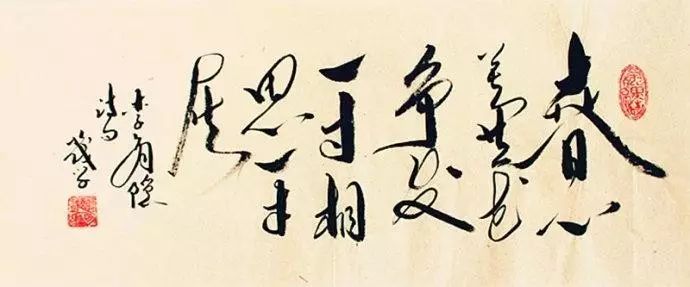 春心
莫共花
争发
一寸相
思一寸
灰
李商隐
诗